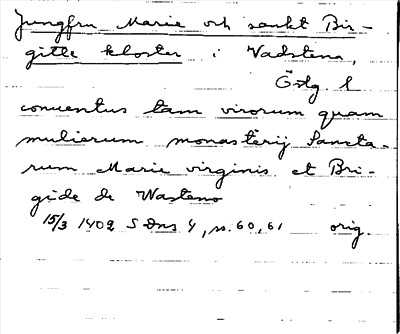 Jungfru Marie och sankt Bir-
gitte kloster i Vadstena,
Östg. l
conuentus tam virorum quam
mulierum monasterij Sancta-
rum Marie virginis et Bri-
gide de Wasteno
15/3 1402 SDns 4, s. 60, 61 orig.